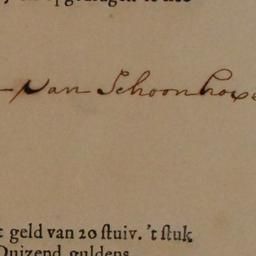 van Schoonhove
t geld van 20 stuiv. 't stuk
Duizend guldens